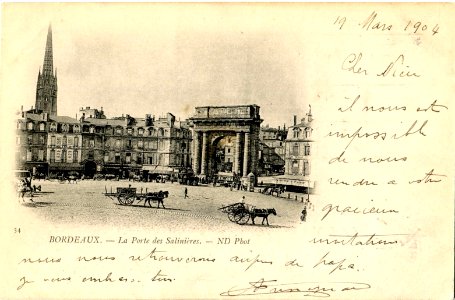 19 Mars 1904
Cher
il nous est
impossible
de nous
rendre a
gracieux
invitation
34
BORDEAUX. — La Porte des Salinières. — ND Phot
nous nous retrouverons aupres de papa.
je vous